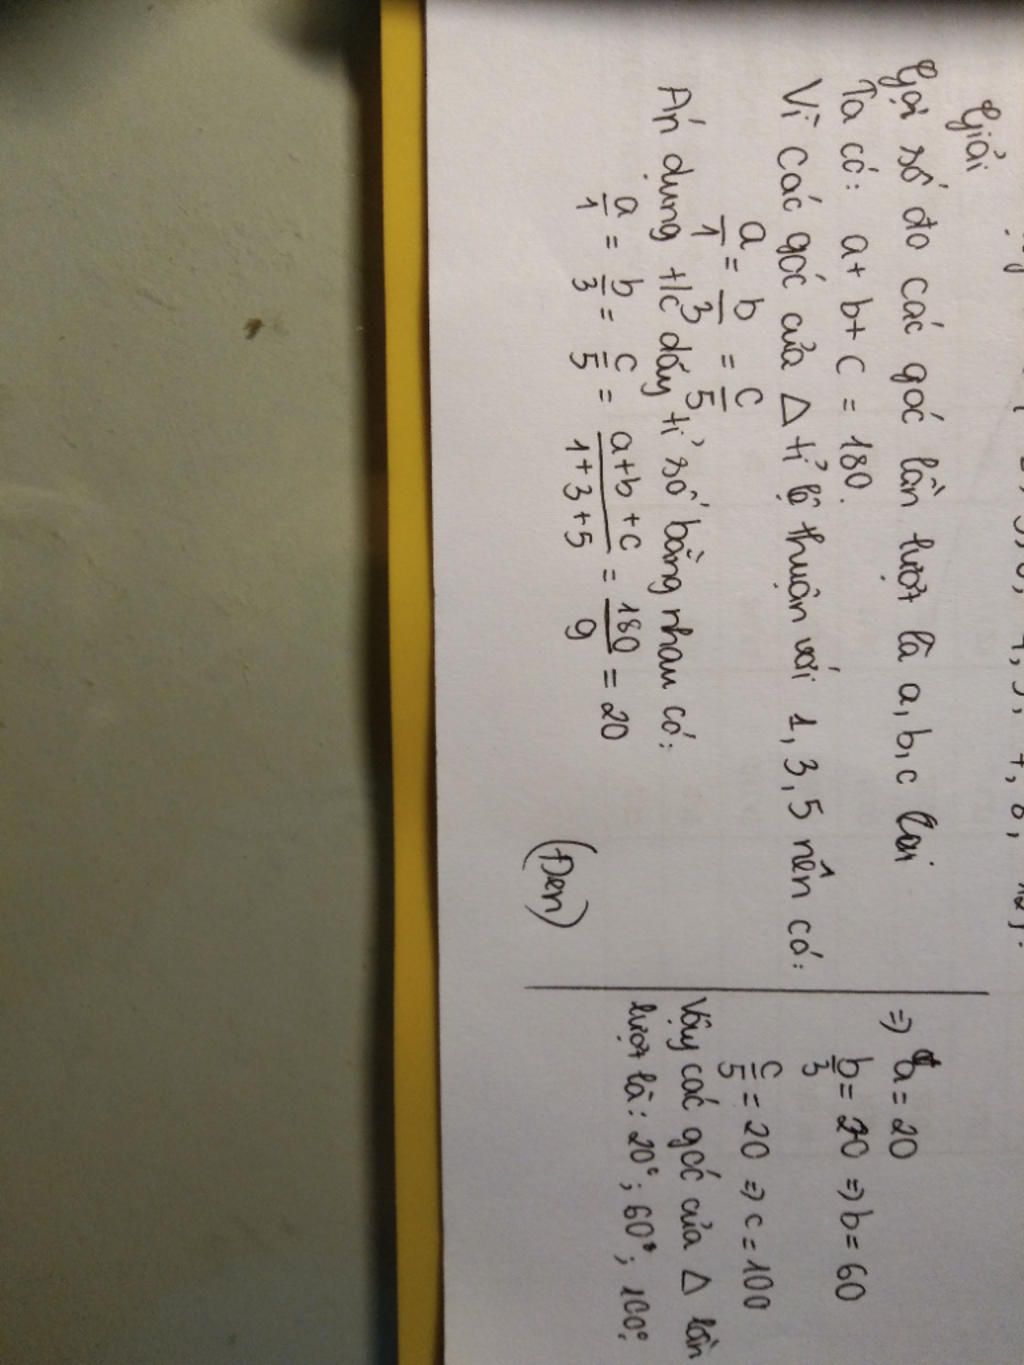 Giải
Gọi số đo các góc lần lượt là a, b, c
Ta có: a + b + c = 180.
Vì các góc của Δ tỉ lệ thuận với 1, 3, 5 nên có:
a/1 = b/3 = c/5
Áp dụng t/c dãy tỉ số bằng nhau có:
a/1 = b/3 = c/5 = (a+b+c)/(1+3+5) = 180/9 = 20
(Đen)
=> a = 20
b/3 = 20 => b = 60
c/5 = 20 => c = 100
Vậy các góc của Δ lần
lượt là: 20°; 60°; 100°.